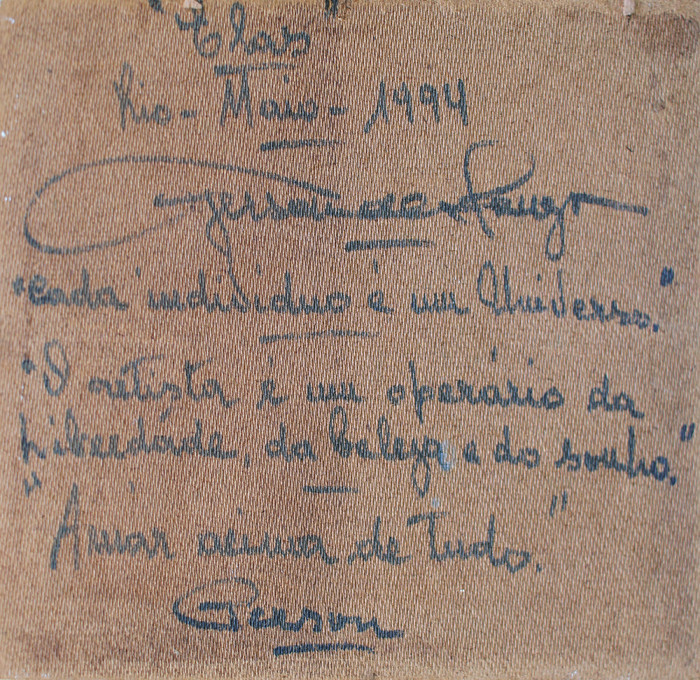 "Elas"
Rio - Maio - 1994
Gerson de
"Cada indivíduo é um Universo."
"O artista é um operário da
Liberdade, da beleza e do sonho."
"Amar acima de tudo."
Gerson